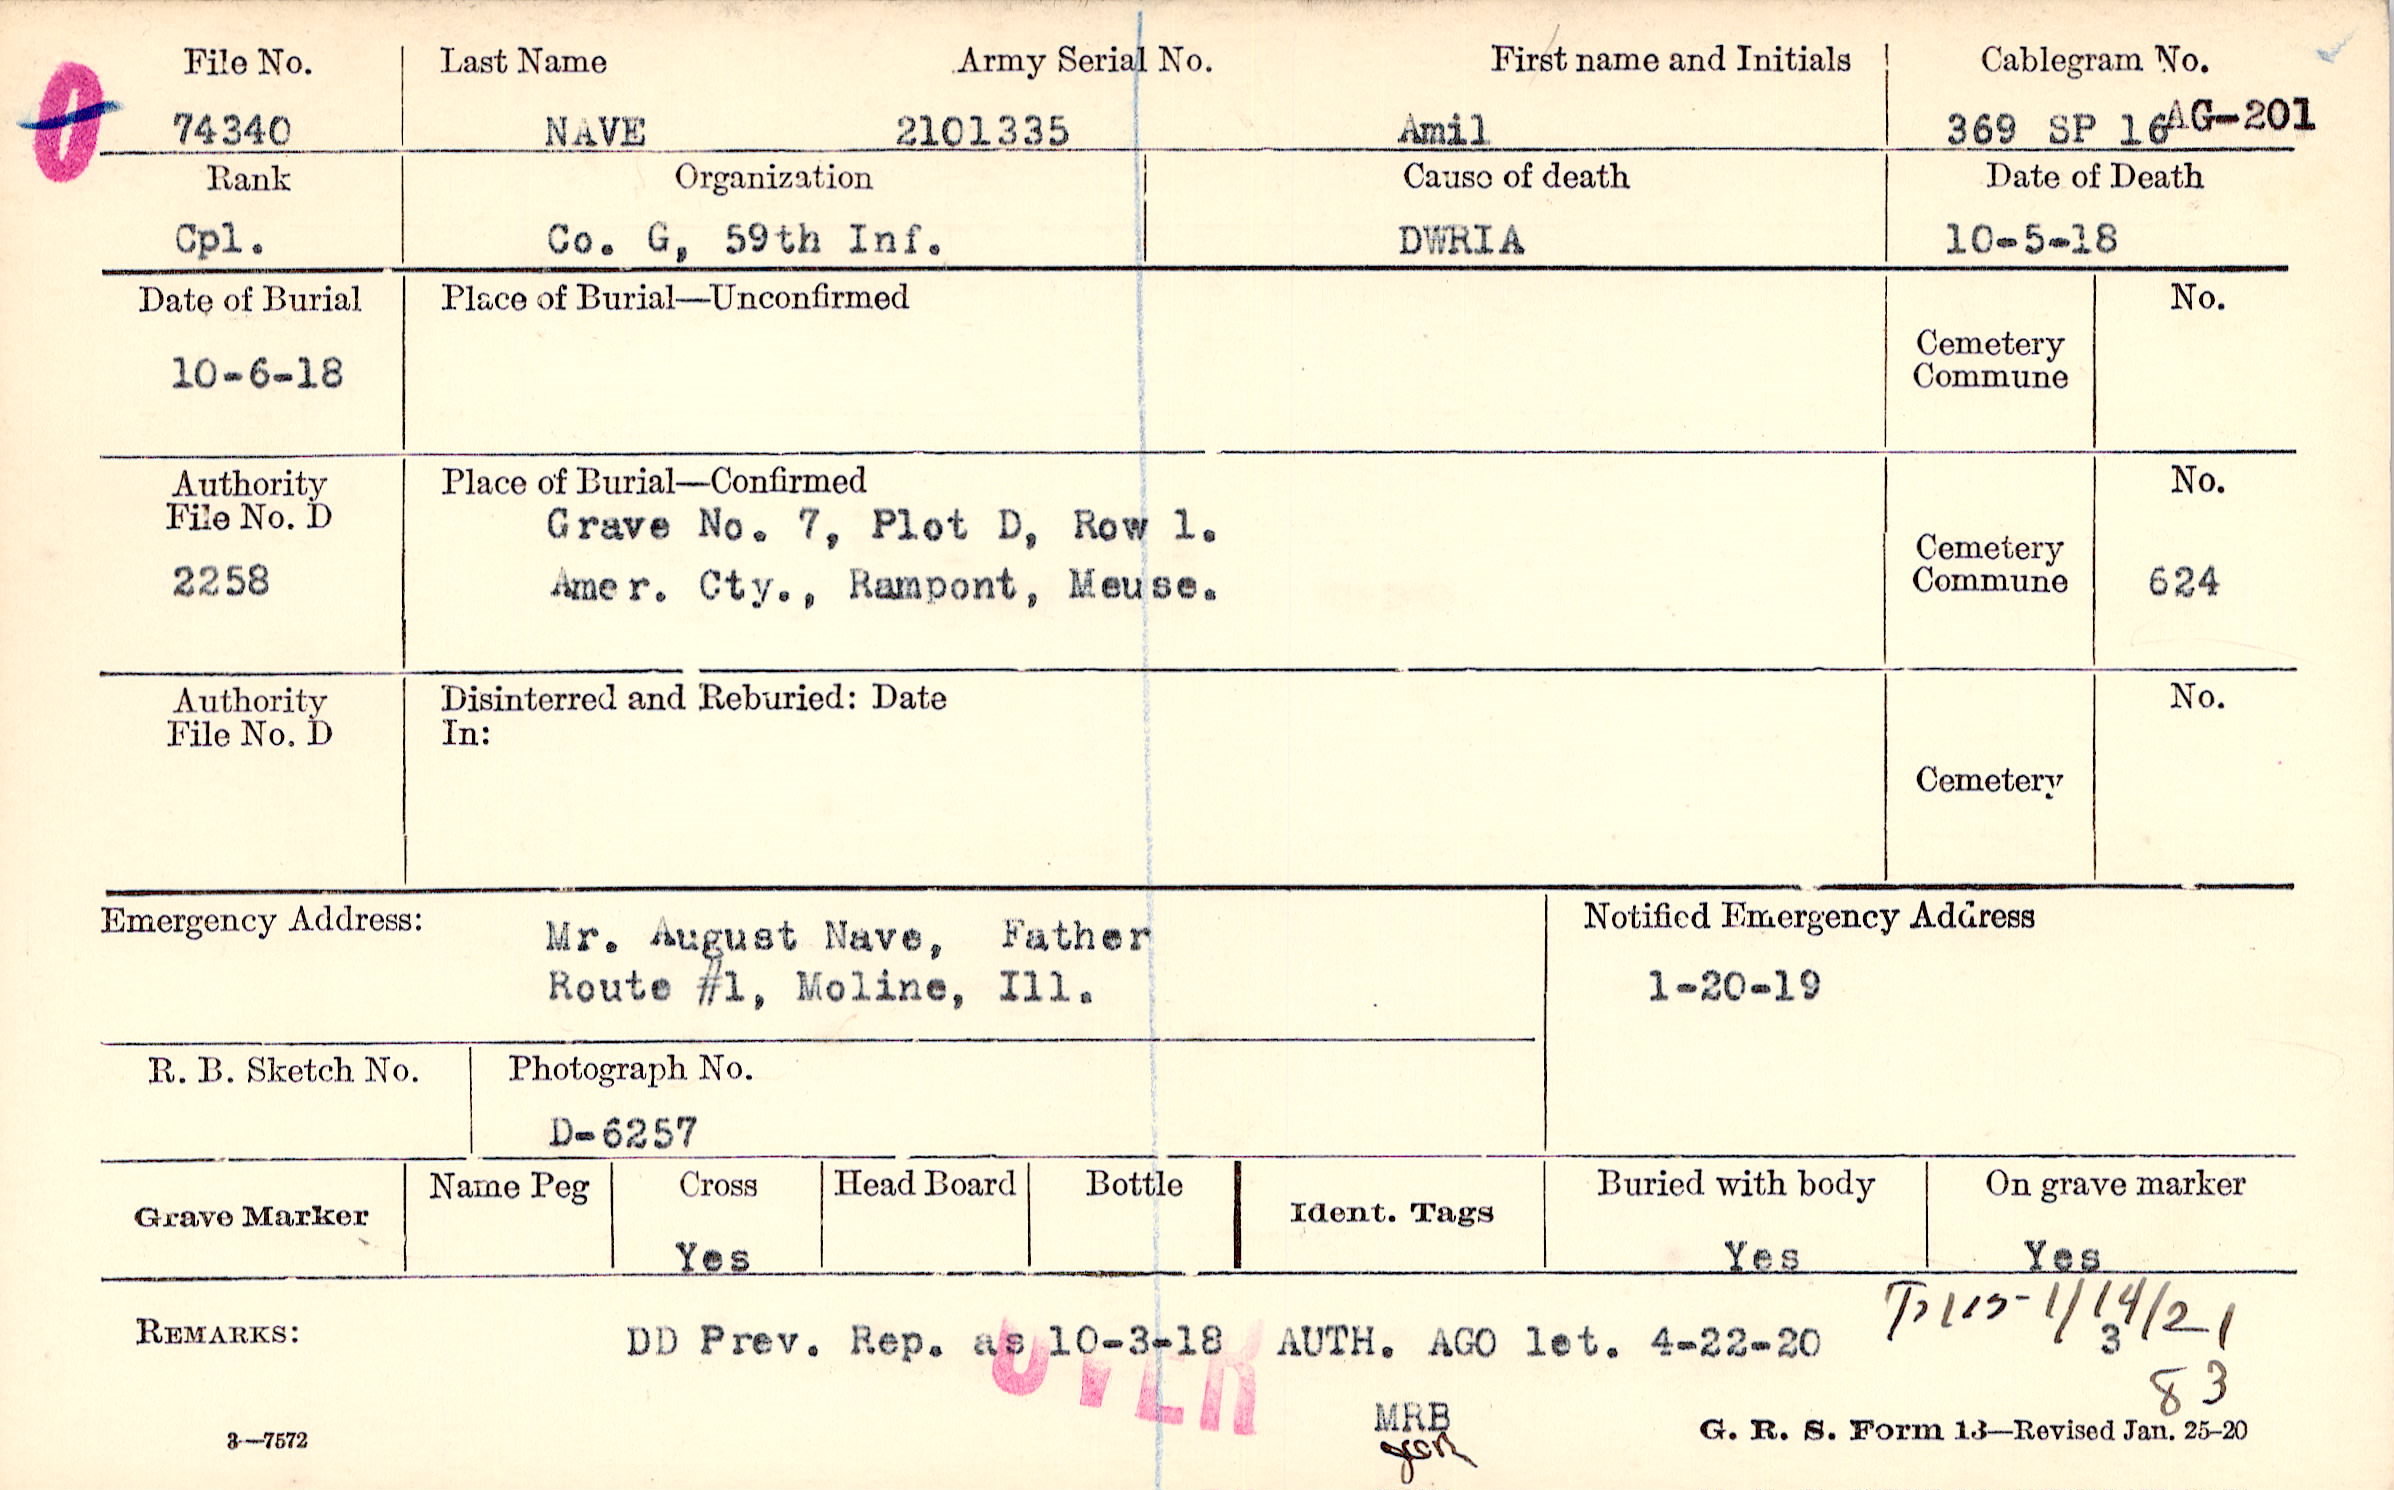 File No. Last Name Army Serial No. First name and Initials Cablegram No.
74340 NAVE 2101335 Amil 369 SP 16 AG-201
Rank Organization Cause of death Date of Death
Cpl. Co. G, 59th Inf. DWRIA 10-5-18
Date of Burial Place of Burial—Unconfirmed No.
Cemetery
Commune
10-6-18
Authority Place of Burial—Confirmed No.
File No. D Grave No. 7, Plot D, Row 1.
Cemetery
2258 Amer. Cty., Rampont, Meuse. Commune 624
Authority Disinterred and Reburied: Date No.
File No. D In:
Cemetery
Emergency Address: Mr. August Nave, Father Notified Emergency Address
Route #1, Moline, Ill. 1-20-19
R. B. Sketch No. Photograph No.
D-6257
Grave Marker Name Peg Cross Head Board Bottle Ident. Tags Buried with body On grave marker
Yes Yes Yes
1/14/21
REMARKS: DD Prev. Rep. as 10-3-18 AUTH. AGO let. 4-22-20 3
OVER
83
MRB
3—7572 G. R. S. Form 13—Revised Jan. 25-20